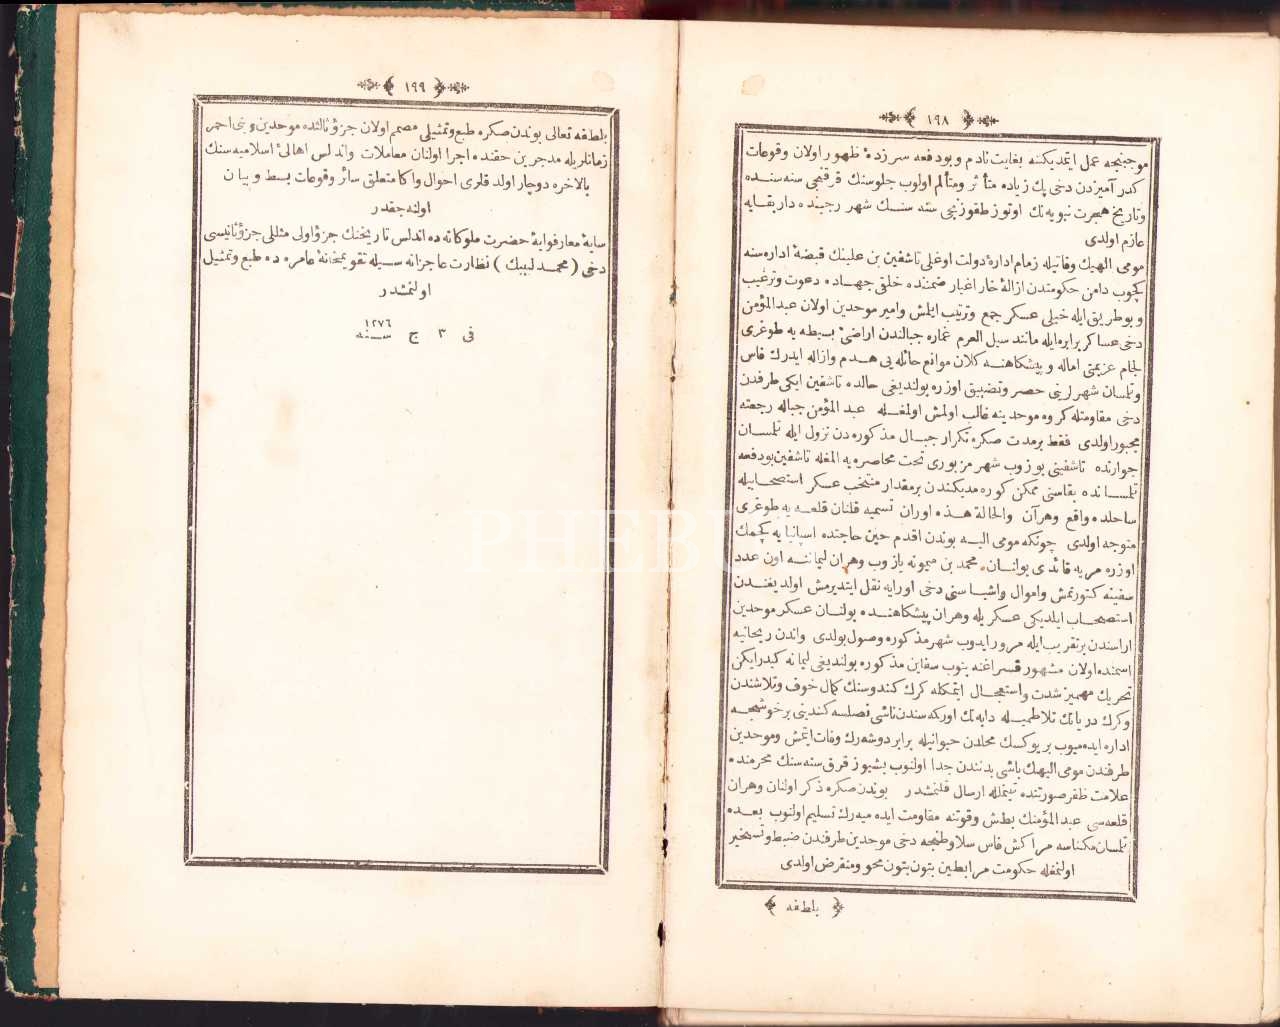 ١٩٨
موجبنجه عمل ایتمدیکنه بغایت نادم و بودفعه سرزدهٔ ظهور اولان وقوعات
کدر آمیزدن دخی پك زیاده متأثر ومتألم اولوب جلوسنك قرقنجی سنه سنده
وتاریخ هجرت نبویه نك اوتوز طقوزنجی سنه سنك شهر رجبنده داربقایه
عازم اولدی
مومی الیهك وفاتیله زمام ادارهٔ دولت اوغلی تاشفین بن علینك قبضهٔ اداره سنه
کچوب دامن حکومتدن ازالهٔ خار اغیار ضمننده خلقی جهاده دعوت وترغیب
وبوطریق ایله خیلی عسکر جمع وترتیب ایلمش وامیر موحدین اولان عبدالمؤمن
دخی عساکر برابره ایله مانند سیل العرم غماره جبالندن اراضئ بسیطه یه طوغری
لجام عزیمتی اماله و پیشکاهنه کلان موانع حائله یی هدم وازاله ایدرك فاس
وتلمسان شهرلرینی حصر وتضییق اوزره بولندیغی حالده تاشفین ایکی طرفدن
دخی مقاومتله کروه موحدینه غالب اولمش اولمغله عبد المؤمن جباله رجعته
مجبور اولدی فقط برمدت صکره تکرار جبال مذکوره دن نزول ایله تلمسان
جوارنده تاشفینی بوزوب شهر مزبوری تحت محاصره یه المغله تاشفین بودفعه
تلمسانده بقاسنی ممکن کوره مدیکندن برمقدار منتخب عسکر استصحابیله
ساحلده واقع وهرآن والحالة هذه اوران تسمیه قلنان قلعه یه طوغری
متوجه اولدی چونکه مومی الیه بوندن اقدم حین حاجتده اسپانیا یه کچمك
اوزره مریه قائدی بولنان محمد بن میمونه یازوب وهران لیماننه اون عدد
سفینه کتورتمش واموال واشیاسنی دخی اورایه نقل ایتدیرمش اولدیغندن
استصحاب ایلدیکی عسکریله وهران پیشکاهنده بولنان عسکر موحدین
اراسندن برتقریب ایله مرور ایدوب شهر مذکوره وصول بولدی واندن ریحانیه
اسمنده اولان مشهور قسراغنه بنوب سفاین مذکوره بولندیغی لیمانه کیدرایکن
تحریك مهمیز شدت واستعجال ایتمکله کرك کندوسنك کمال خوف وتلاشندن
وکرك دریانك تلاطمیله دابه نك اورکه سندن ناشی نصلسه کندینی برخوشجه
اداره ایده میوب بریوکسك محلدن حیوانیله برابر دوشه رك وفات ایتمش وموحدین
طرفندن مومی الیهك باشی بدنندن جدا اولنوب بشیوز قرق سنه سنك محرمنده
علامت ظفر صورتنده تینملله ارسال قلنمشدر بوندن صکره ذکر اولنان وهران
قلعه سی عبدالمؤمنك بطش وقوتنه مقاومت ایده میه رك تسلیم اولنوب بعده
تلمسان مکناسه مراکش فاس سلا وطنجه دخی موحدین طرفندن ضبط وتسخیر
اولنمغله حکومت مرابطین بتون بتون محو ومنقرض اولدی
بلطفه
١٩٩
بلطفه تعالی بوندن صکره طبع وتمثیلی مصمم اولان جزؤ ثالثده موحدین وبنی احمر
زمانلریله مدجرین حقنده اجرا اولنان معاملات واندلس اهالئ اسلامیه سنك
بالاخره دوچار اولدقلری احوال واکا متعلق سائر وقوعات بسط وبیان
اولنه جقدر
سایهٔ معارفوایهٔ حضرت ملوکانه ده اندلس تاریخنك جزؤ اولی مثللی جزؤ ثانیسی
دخی (محمد لبیبك) نظارت عاجزانه سیله تقویمخانهٔ عامره ده طبع وتمثیل
اولنمشدر
فی ٣ ج سنه ١٢٧٦
PHEBU